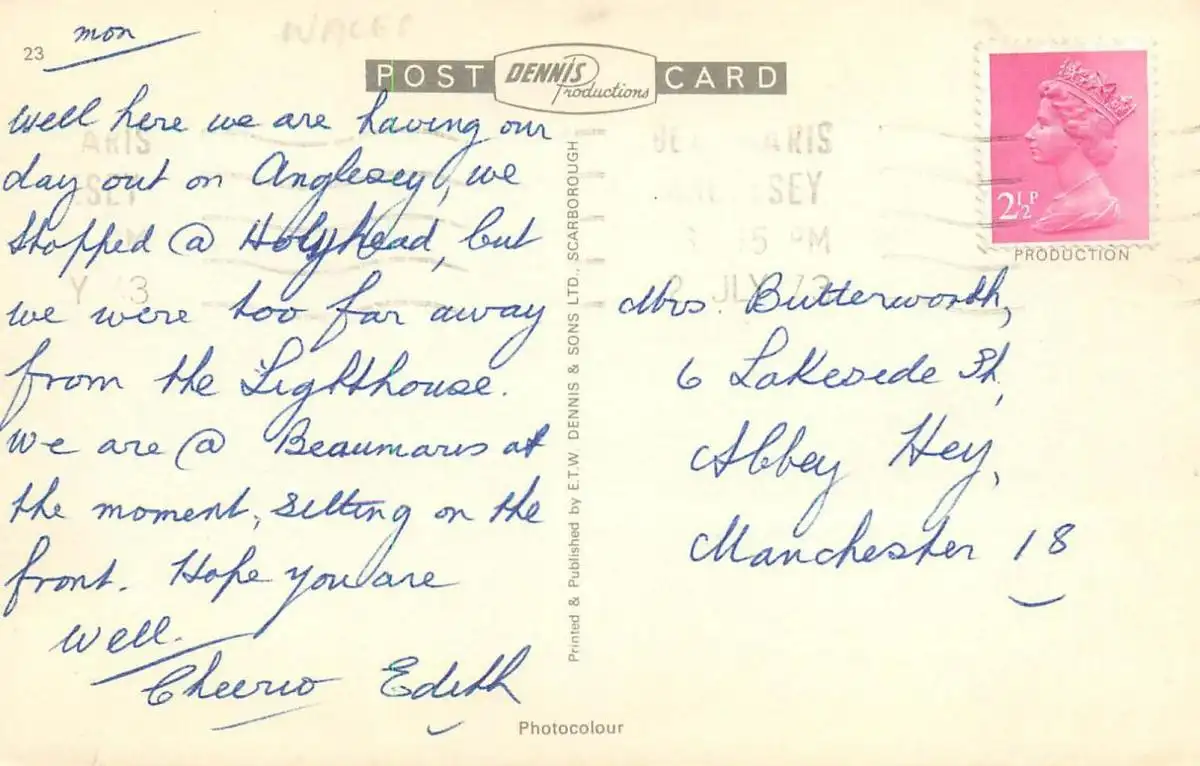 23
mon
WALES
POST
DENNIS
Productions
CARD
well here we are having our
day out on Anglesey, we
stopped @ Holyhead, but
we were too far away
from the Lighthouse.
We are @ Beaumaris at
the moment, sitting on the
front. Hope you are
well.
Cheerio Edith
Printed & Published by E.T.W. DENNIS & SONS LTD., SCARBOROUGH
2½P
PRODUCTION
ARIS
SEY
PM
JULY 73
Mrs. Butterworth,
6 Lakeside
Abbey Hey,
Manchester 18
Photocolour